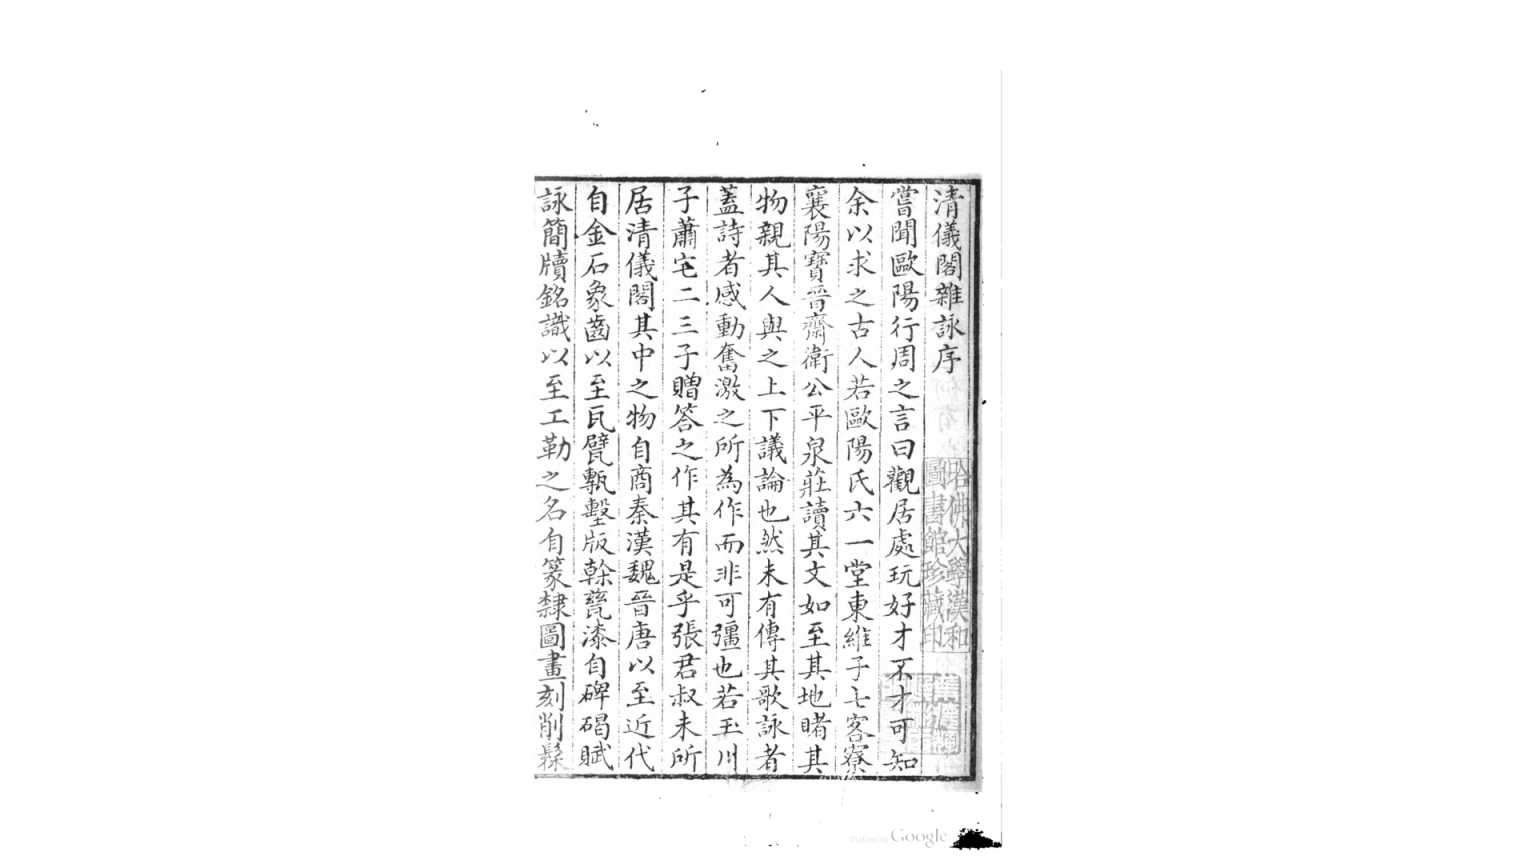 清儀閣雜詠序
嘗聞歐陽行周之言曰觀居處玩好才不才可知
余以求之古人若歐陽氏六一堂東維子七客寮
襄陽寶晉齋衛公平泉莊讀其文如至其地睹其
物親其人與之上下議論也然未有傳其歌詠者
蓋詩者感動奮激之所為作而非可彊也若玉川
子蕭宅二三子贈答之作其有是乎張君叔未所
居清儀閣其中之物自商秦漢魏晉唐以至近代
自金石象齒以至瓦甓甎墼版榦甆漆自碑碣賦
詠簡牘銘識以至工勒之名自篆隸圖畫刻削髹
哈佛大學漢和
圖書館珍藏印
Digitized by Google